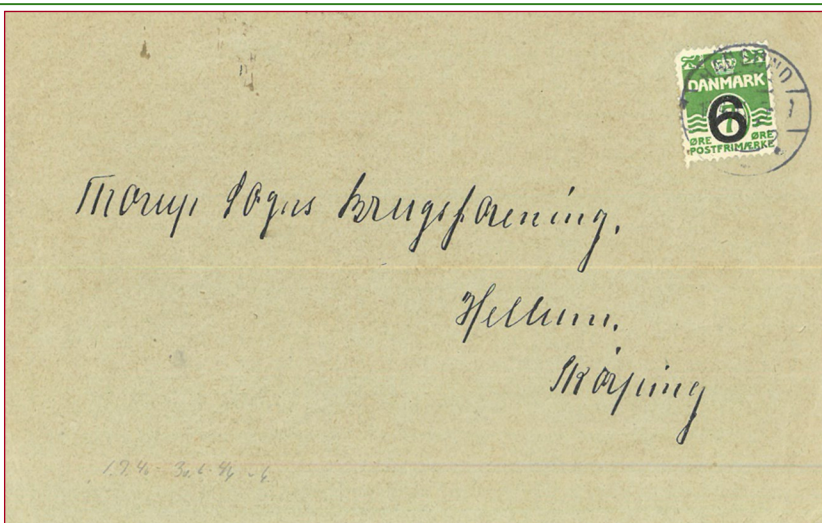 DANMARK
6
ØRE ØRE
POSTFRIMÆRKE
Thorup Sogns Brugsforening.
Hellum.
Skörping